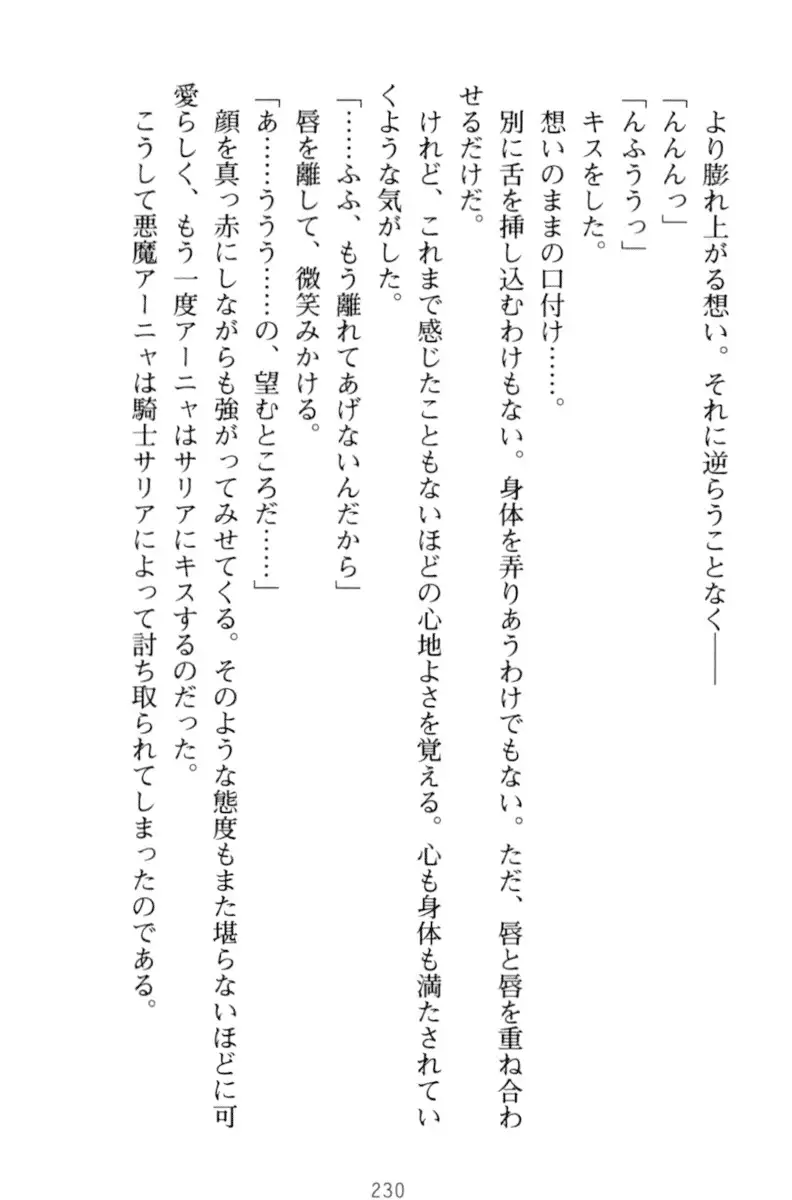 より膨れ上がる想い。それに逆らうことなく――
「んんんっ」
「んふううっ」
キスをした。
想いのままの口付け……。
別に舌を挿し込むわけもない。身体を弄りあうわけでもない。ただ、唇と唇を重ね合わ
せるだけだ。
けれど、これまで感じたこともないほどの心地よさを覚える。心も身体も満たされてい
くような気がした。
「……ふふ、もう離れてあげないんだから」
唇を離して、微笑みかける。
「あ……ううう……の、望むところだ……」
顔を真っ赤にしながらも強がってみせてくる。そのような態度もまた堪らないほどに可
愛らしく、もう一度アーニャはサリアにキスするのだった。
こうして悪魔アーニャは騎士サリアによって討ち取られてしまったのである。
230